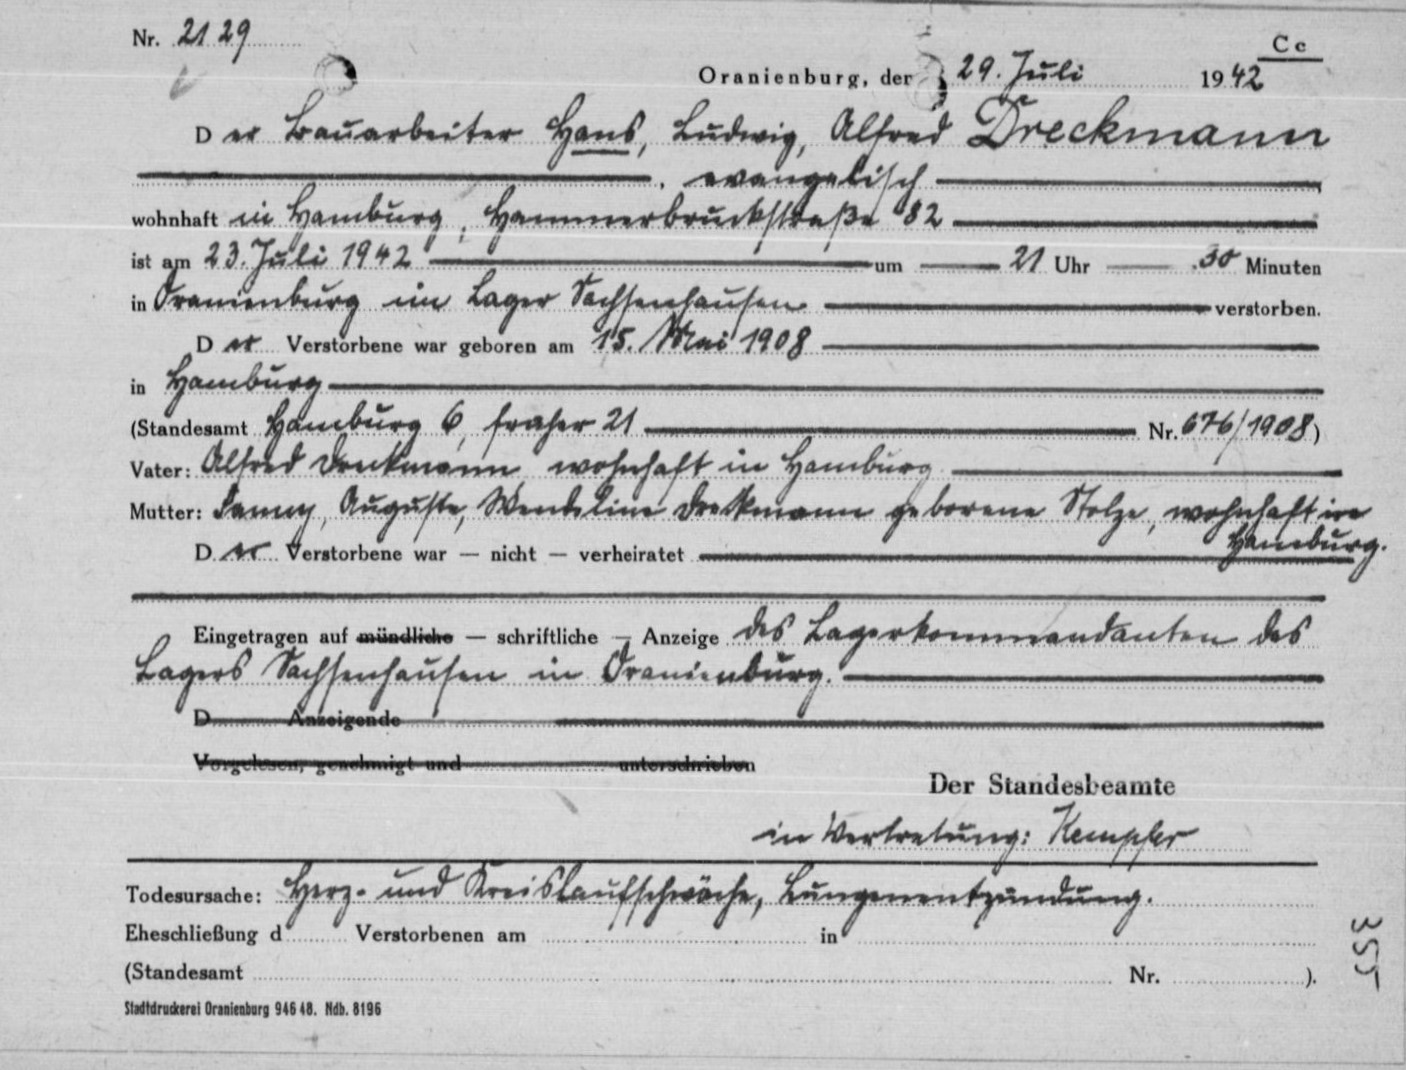 Nr. 2129
Cc
Oranienburg, den 29. Juli 1942
Der Bauarbeiter Hans, Ludwig, Alfred Dreckmann
, evangelisch
wohnhaft in Hamburg, Hammerbruckstraße 82
ist am 23. Juli 1942 um 21 Uhr 30 Minuten
in Oranienburg im Lager Sachsenhausen verstorben.
Der Verstorbene war geboren am 15. Mai 1908
in Hamburg
(Standesamt Hamburg 6, früher 21 Nr. 676/1908)
Vater: Alfred Dreckmann wohnhaft in Hamburg
Mutter: Fanny, Auguste, Wendeline Dreckmann geborene Stolze, wohnhaft in
Hamburg.
Der Verstorbene war — nicht — verheiratet
Eingetragen auf mündliche — schriftliche — Anzeige des Lagerkommandanten des
Lagers Sachsenhausen in Oranienburg.
D Anzeigende
Vorgelesen, genehmigt und unterschrieben
Der Standesbeamte
in Vertretung:
Todesursache: Herz- und Kreislaufschwäche, Lungenentzündung.
Eheschließung d Verstorbenen am in
(Standesamt Nr. ).
Stadtdruckerei Oranienburg 946 48. Ndb. 8196
355